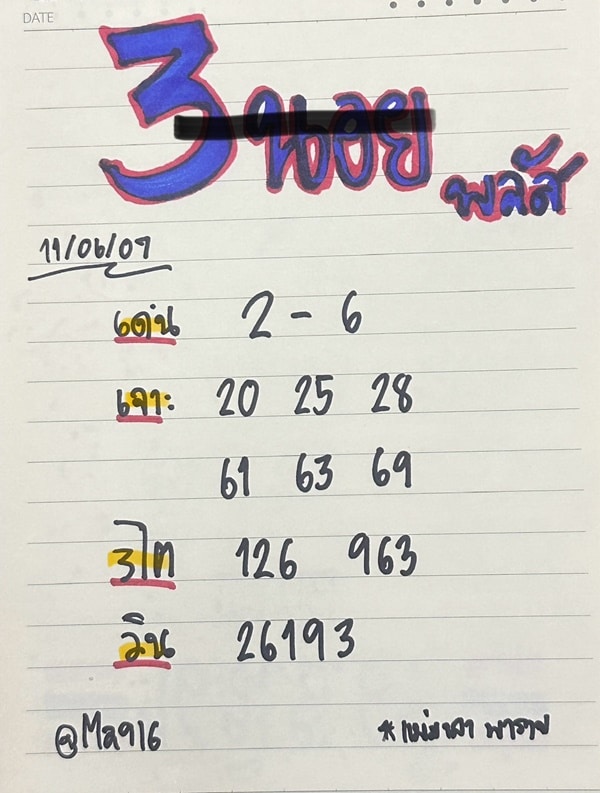 DATE
3 นอย
พลัส
11/06/07
เด่น 2 - 6
เจาะ 20 25 28
61 63 69
3 ไต 126 963
วิน 26193
@Ma916 *แม่นลา พารวย